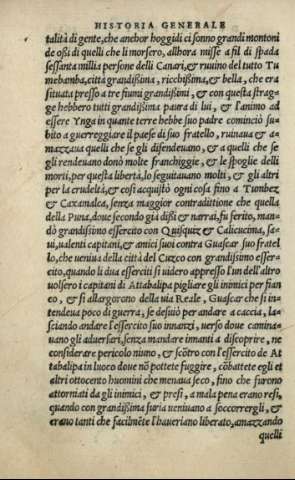 HISTORIA GENERALE
talità di gente, che anchor hoggidi ci sonno grandi montoni
de oßi di quelli che li morsero, allhora misse a fil di spada
sessanta millia persone delli Canari, & ruuino del tutto Tu
mebamba, città grandißima, ricchißima, & bella, che era
situata presso a tre fiumi grandißimi, & con questa strag-
ge hebbero tutti grandißima paura di lui, & l'animo ad
essere Ynga in quante terre hebbe suo padre cominciò su-
bito a guerreggiare il paese di suo fratello, ruinaua & a-
mazzaua quelli che se gli difendeuano, & a quelli che se
gli rendeuano donò molte franchiggie, & le spoglie delli
morti, per questa libertà, lo seguitauano molti, & gli altri
per la crudeltà, & cosi acquistò ogni cosa fino a Tumbez
& Caxamalca, senza maggior contradittione che quella
della Puna, doue secondo già dißi & narrai, fu ferito, man-
dò grandißimo essercito con Quisquiz & Calicucima, sa-
ui, ualenti capitani, & amici suoi contra Guascar suo fratel
lo, che ueniua della città del Cuzco con grandißimo esser-
cito, quando li dua esserciti si uidero appresso l'un dell'altro
uolsero i capitani di Attabalipa pigliare gli inimici per fian
co, & si allargorono della uia Reale, Guascar che si in-
tendeua poco di guerra, se desuiò per andare a caccia, la-
sciando andare l'essercito suo innanzi, uerso doue camina-
uano gli aduersari, senza mandare innanti a discoprire, ne
considerare pericolo niuno, & scōtrò con l'essercito de At
tabalipa in luoco doue nō pottete fuggire, cōbattete egli et
altri ottocento huomini che menaua seco, fino che furono
attorniati da gli inimici, & presi, a mala pena erano resi,
quando con grandißima furia ueniuano a soccorrergli, &
erano tanti che facilmēte l'haueriano liberato, amazzando
quelli